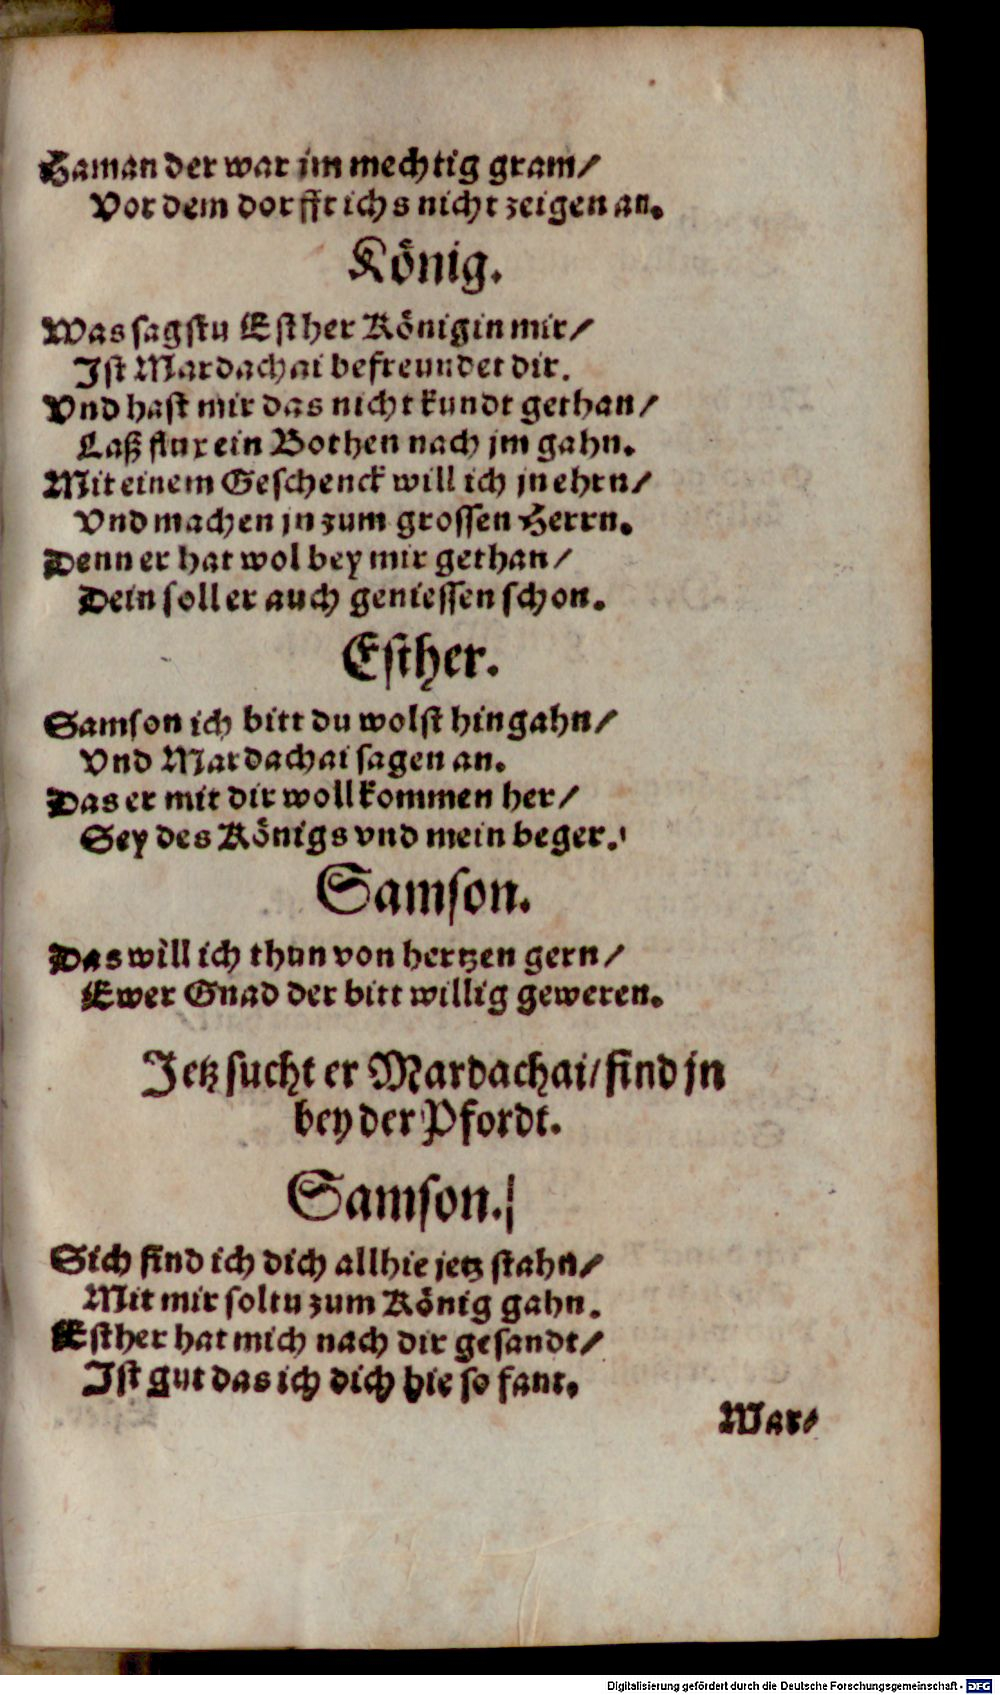 Haman der war jm mechtig gram/
Vor dem dorfft ichs nicht zeigen an.
König.
Was sagstu Esther Königin mir/
Ist Mardachai befreundet dir.
Vnd hast mir das nicht kundt gethan/
Laß flux ein Bothen nach jm gahn.
Mit einem Geschenck will ich jn ehrn/
Vnd machen jn zum grossen Herrn.
Denn er hat wol bey mir gethan/
Dein soll er auch geniessen schon.
Esther.
Samson ich bitt du wolst hingahn/
Vnd Mardachai sagen an.
Das er mit dir woll kommen her/
Sey des Königs vnd mein beger.
Samson.
Das will ich thun von hertzen gern/
Ewer Gnad der bitt willig geweren.
Jetz sucht er Mardachai/ find jn
bey der Pfordt.
Samson.
Sich find ich dich allhie jetz stahn/
Mit mir soltu zum König gahn.
Esther hat mich nach dir gesandt/
Ist gut das ich dich hie so fant.
Mar/
Digitalisierung gefördert durch die Deutsche Forschungsgemeinschaft - DFG